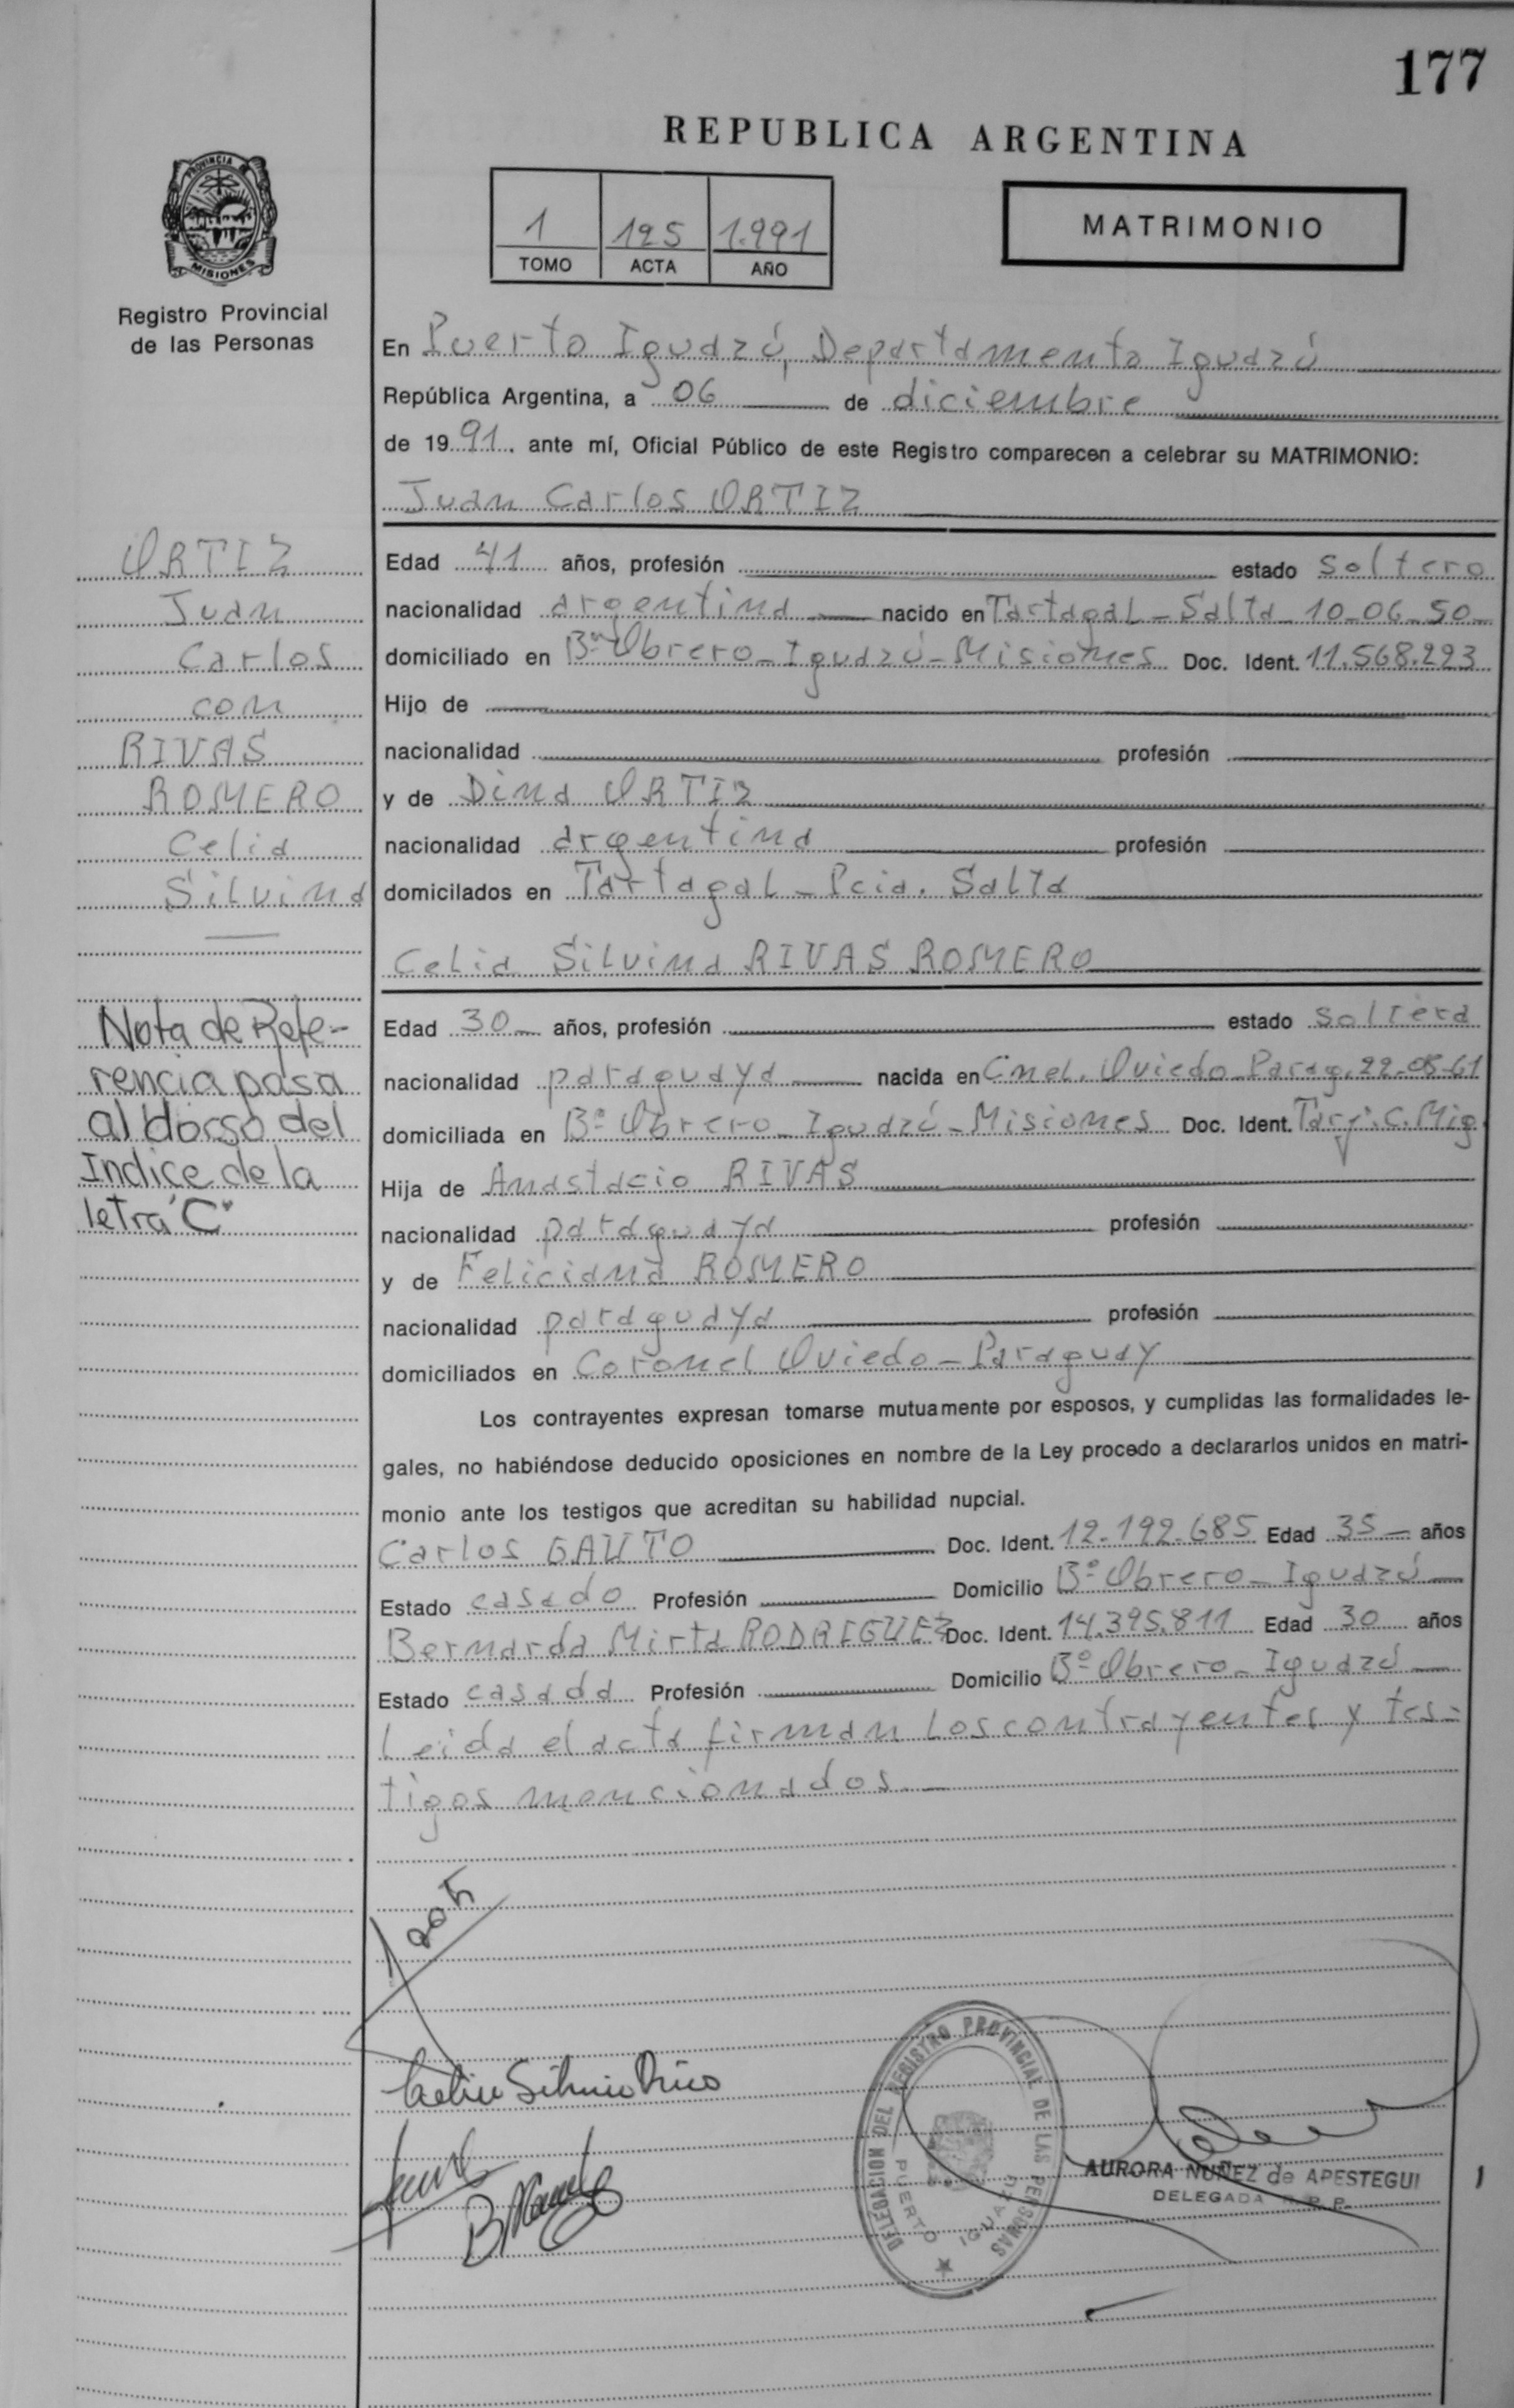 177
REPUBLICA ARGENTINA
PROVINCIA
MISIONES
Registro Provincial
de las Personas
1 125 1.991
TOMO ACTA AÑO
MATRIMONIO
En Puerto Iguazú, Departamento Iguazú
República Argentina, a 06 de diciembre
de 1991. ante mí, Oficial Público de este Registro comparecen a celebrar su MATRIMONIO:
Juan Carlos ORTIZ
ORTIZ
Juan
Carlos
con
RIVAS
ROMERO
Celia
Silvina
Nota de Refe-
rencia pasa
al dorso del
Indice de la
letra "C"
Edad 41 años, profesión estado soltero
nacionalidad argentina nacido en Tartagal - Salta 10-06-50
domiciliado en Bº Obrero - Iguazú - Misiones Doc. Ident. 11.568.223
Hijo de
nacionalidad profesión
y de Dina ORTIZ
nacionalidad argentina profesión
domicilados en Tartagal - Pcia. Salta
Celia Silvina RIVAS ROMERO
Edad 30 años, profesión estado soltera
nacionalidad paraguaya nacida en Cnel. Oviedo - Parag. 22-05-61
domiciliada en Bº Obrero - Iguazú - Misiones Doc. Ident. Tarj. C. Mig.
Hija de Anastacio RIVAS
nacionalidad paraguaya profesión
y de Feliciana ROMERO
nacionalidad paraguaya profesión
domiciliados en Coronel Oviedo - Paraguay
Los contrayentes expresan tomarse mutuamente por esposos, y cumplidas las formalidades le-
gales, no habiéndose deducido oposiciones en nombre de la Ley procedo a declararlos unidos en matri-
monio ante los testigos que acreditan su habilidad nupcial.
Carlos GAUTO Doc. Ident. 12.192.685 Edad 35 años
Estado casado Profesión Domicilio Bº Obrero - Iguazú
Bernarda Mirta RODRIGUEZ Doc. Ident. 14.395.811 Edad 30 años
Estado casada Profesión Domicilio Bº Obrero - Iguazú
Leida el acta firman los contrayentes y tes-
tigos mencionados.
DELEGACION DEL REGISTRO PROVINCIAL DE LAS PERSONAS
PUERTO IGUAZU
AURORA NUÑEZ de APESTEGUI
DELEGADA R. P. P.